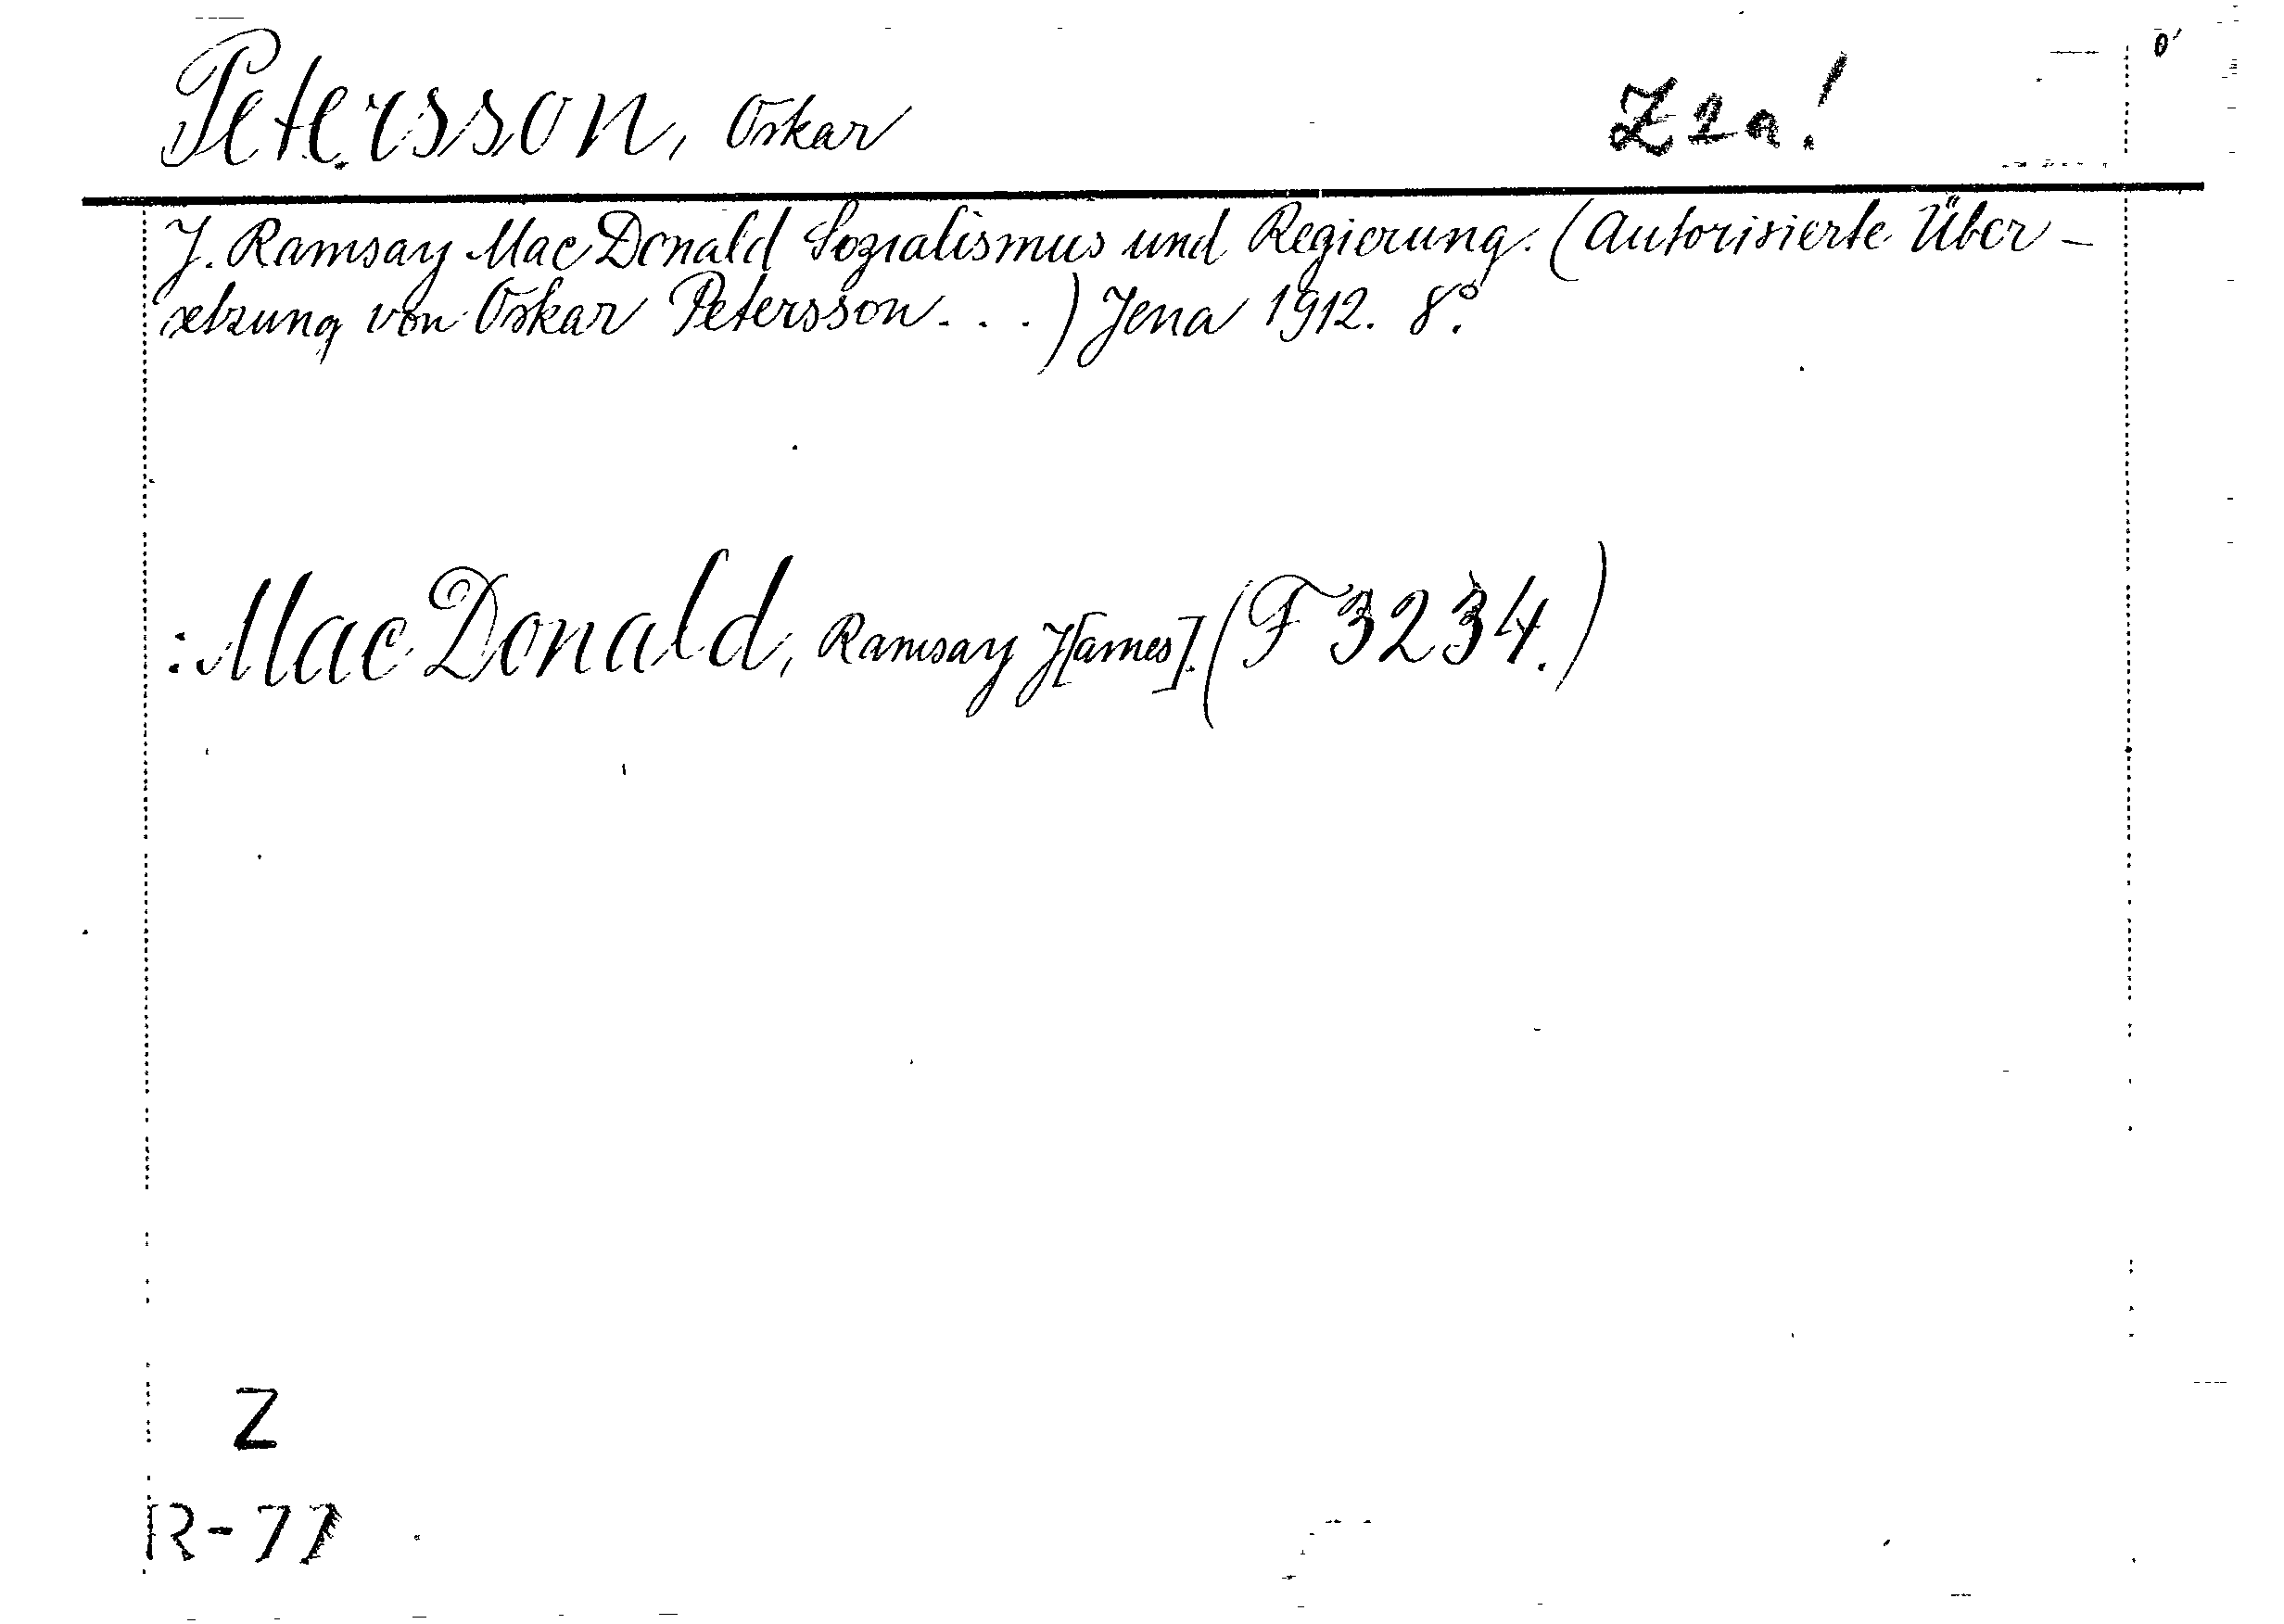 Petersson, Oskar Z2a!
J. Ramsay Mac Donald Sozialismus und Regierung. (Autorisierte Über-
setzung von Oskar Petersson...) Jena 1912. 8°.
: Mac Donald, Ramsay J[ames]. (F 3234.)
Z
R-77